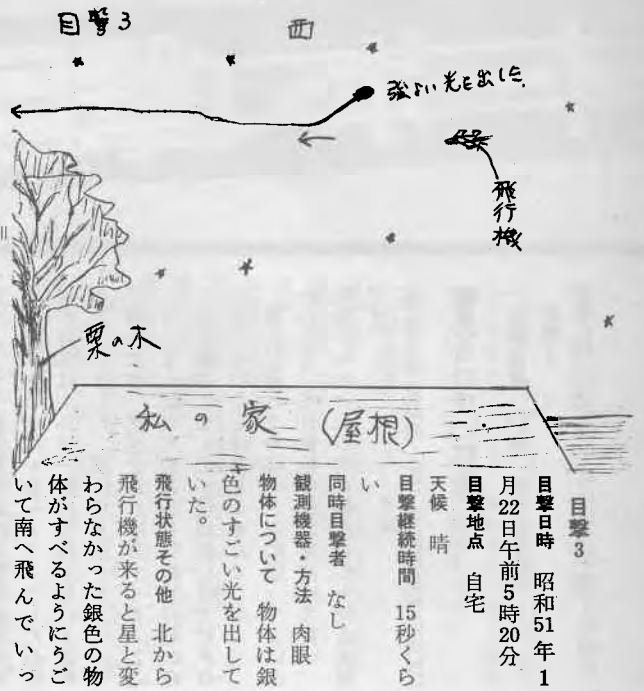 目撃3
西
強よい光を出した。
飛行機
栗の木
私の家(屋根)
目撃3
目撃日時 昭和51年1
月22日午前5時20分
目撃地点 自宅
天候 晴
目撃継続時間 15秒くら
い
同時目撃者 なし
観測機器・方法 肉眼
物体について 物体は銀
色のすごい光を出して
いた。
飛行状態その他 北から
飛行機が来ると星と変
わらなかった銀色の物
体がすべるようにうご
いて南へ飛んでいっ